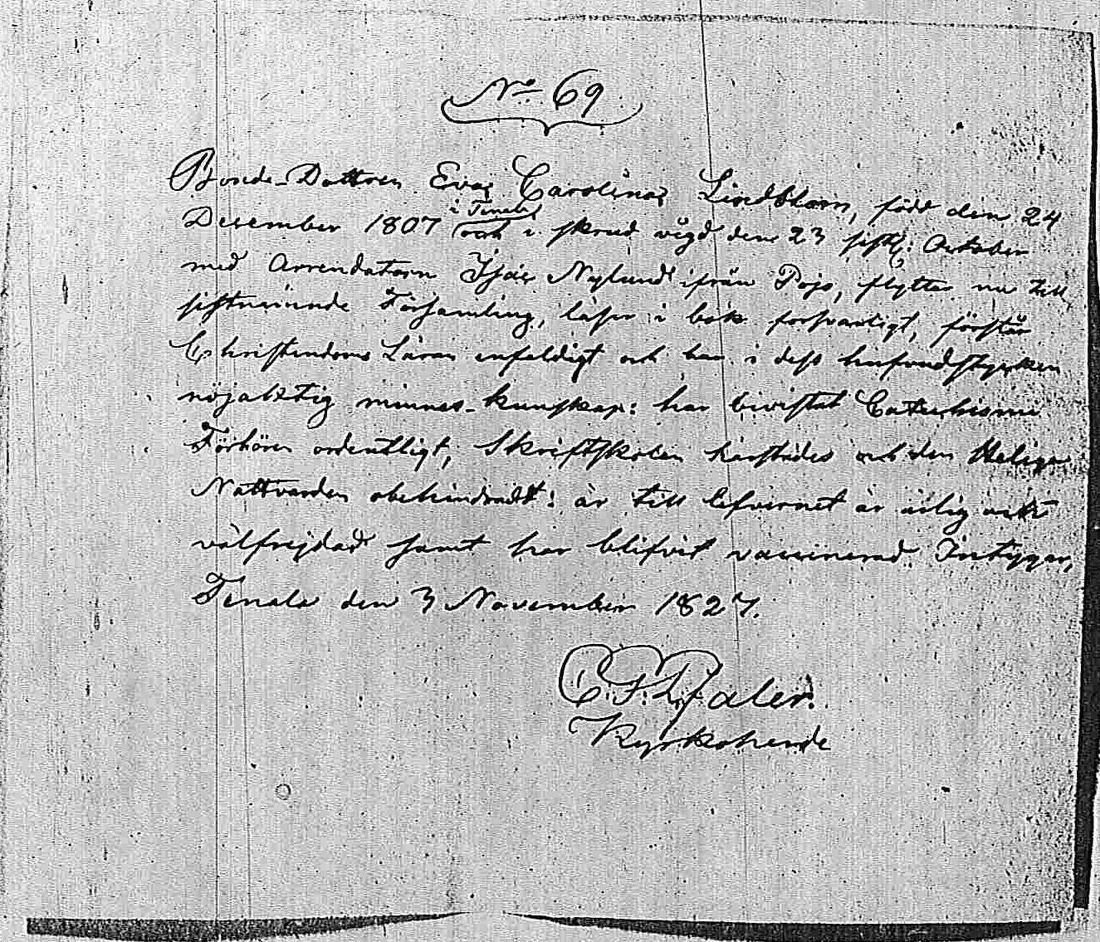 No 69
Bonde-Dottren Eva Carolina Lindblom, född den 24
December 1807 i Tenala och i skrud vigd den 23 sistl: October
med Arrendatorn Isac Nylund ifrån Pojo, flyttar nu till
sistnämnde Församling, läser i bok försvarligt, förstår
Christendoms Läran enfaldigt och har i dess hufvudstycken
nöjaktig minnes-kunskap: har bivistat Catechismi
Förhören ordentligt, Skriftskolan härstädes och den Heliga
Nattvarden obehindradt: är till lefvernet är ärlig och
välfrejdad samt har blifvit vaccinerad. Intygar,
Tenala den 3 November 1827.
Kyrkoherde